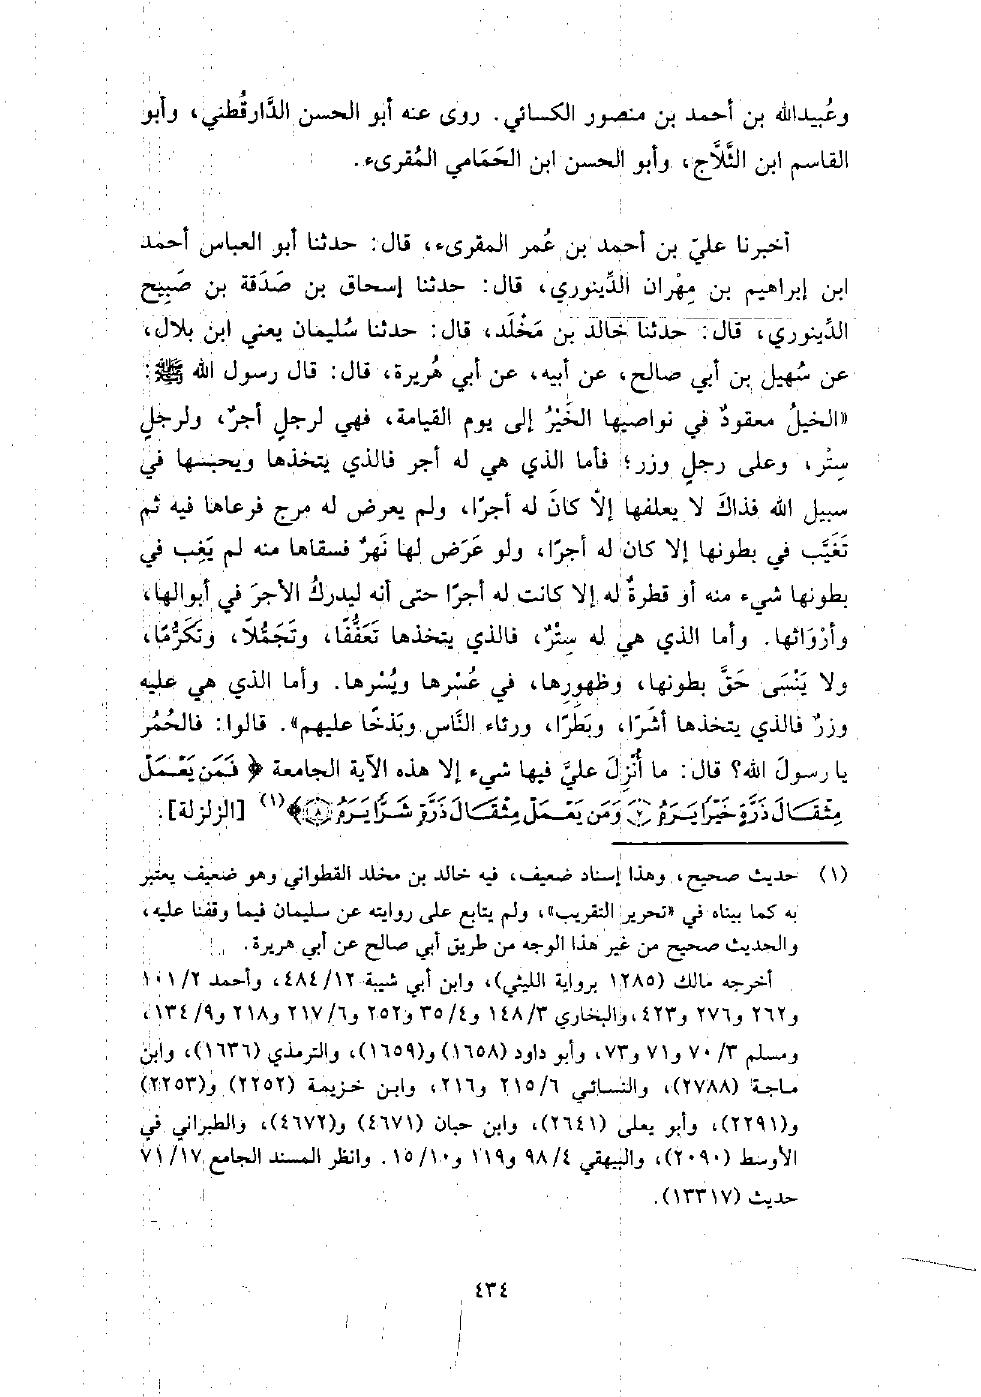 وعُبيدالله بن أحمد بن منصور الكسائي. روى عنه أبو الحسن الدَّارقُطني، وأبو
القاسم ابن الثَّلَّاج، وأبو الحسن ابن الحَمَامي المُقرىء.
أخبرنا عليّ بن أحمد بن عُمر المقرىء، قال: حدثنا أبو العباس أحمد
ابن إبراهيم بن مِهْران الدِّينوري، قال: حدثنا إسحاق بن صَدَقة بن صَبِيح
الدِّينوري، قال: حدثنا خالد بن مَخْلَد، قال: حدثنا سُليمان يعني ابن بلال،
عن سُهيل بن أبي صالح، عن أبيه، عن أبي هُريرة، قال: قال رسول الله ﷺ:
«الخيلُ معقودٌ في نواصيها الخَيْرُ إلى يوم القيامة، فهي لرجلٍ أجرٌ، ولرجلٍ
سِتْر، وعلى رجلٍ وزر؛ فأما الذي هي له أجر فالذي يتخذها ويحبسها في
سبيل الله فذاكَ لا يعلفها إلاّ كانَ له أجرًا، ولم يعرض له مرج فرعاها فيه ثم
تَغَيَّب في بطونها إلا كان له أجرًا، ولو عَرَض لها نَهرٌ فسقاها منه لم يَغِب في
بطونها شيء منه أو قطرةٌ له إلا كانت له أجرًا حتى أنه ليدركُ الأجرَ في أبوالها،
وأرْوَاثها. وأما الذي هي له سِتْرٌ، فالذي يتخذها تَعَفُّفًا، وتَجَمُّلاً، وتَكَرُّمًا،
ولا يَنْسَى حَقَّ بطونها، وظهورِها، في عُسْرها ويُسْرها. وأما الذي هي عليه
وزرٌ فالذي يتخذها أشَرًا، وبَطَرًا، ورئاء النَّاس وبَذخًا عليهم». قالوا: فالحُمُر
يا رسولَ الله؟ قال: ما أُنْزِلَ عليَّ فيها شيء إلا هذه الآية الجامعة ﴿فَمَن يَعْمَلْ
مِثْقَالَ ذَرَّةٍ خَيْرًا يَرَهُ ﴿٧﴾ وَمَن يَعْمَلْ مِثْقَالَ ذَرَّةٍ شَرًّا يَرَهُ ﴿٨﴾﴾(١) [الزلزلة].
(١) حديث صحيح، وهذا إسناد ضعيف، فيه خالد بن مخلد القطواني وهو ضعيف يعتبر
به كما بيناه في «تحرير التقريب»، ولم يتابع على روايته عن سليمان فيما وقفنا عليه،
والحديث صحيح من غير هذا الوجه من طريق أبي صالح عن أبي هريرة.
أخرجه مالك (١٢٨٥ برواية الليثي)، وابن أبي شيبة ١٢/ ٤٨٤، وأحمد ٢/ ١٠١
و٢٦٢ و٢٧٦ و٤٢٣، والبخاري ٣/ ١٤٨ و٤/ ٣٥ و٢٥٢ و٦/ ٢١٧ و٢١٨ و٩/ ١٣٤،
ومسلم ٣/ ٧٠ و٧١ و٧٣، وأبو داود (١٦٥٨) و(١٦٥٩)، والترمذي (١٦٣٦)، وابن
ماجة (٢٧٨٨)، والنسائي ٦/ ٢١٥ و٢١٦، وابن خزيمة (٢٢٥٢) و(٢٢٥٣)
و(٢٢٩١)، وأبو يعلى (٢٦٤١)، وابن حبان (٤٦٧١) و(٤٦٧٢)، والطبراني في
الأوسط (٢٠٩٠)، والبيهقي ٤/ ٩٨ و١١٩ و١٠/ ١٥. وانظر المسند الجامع ١٧/ ٧١
حديث (١٣٣١٧).
٤٣٤